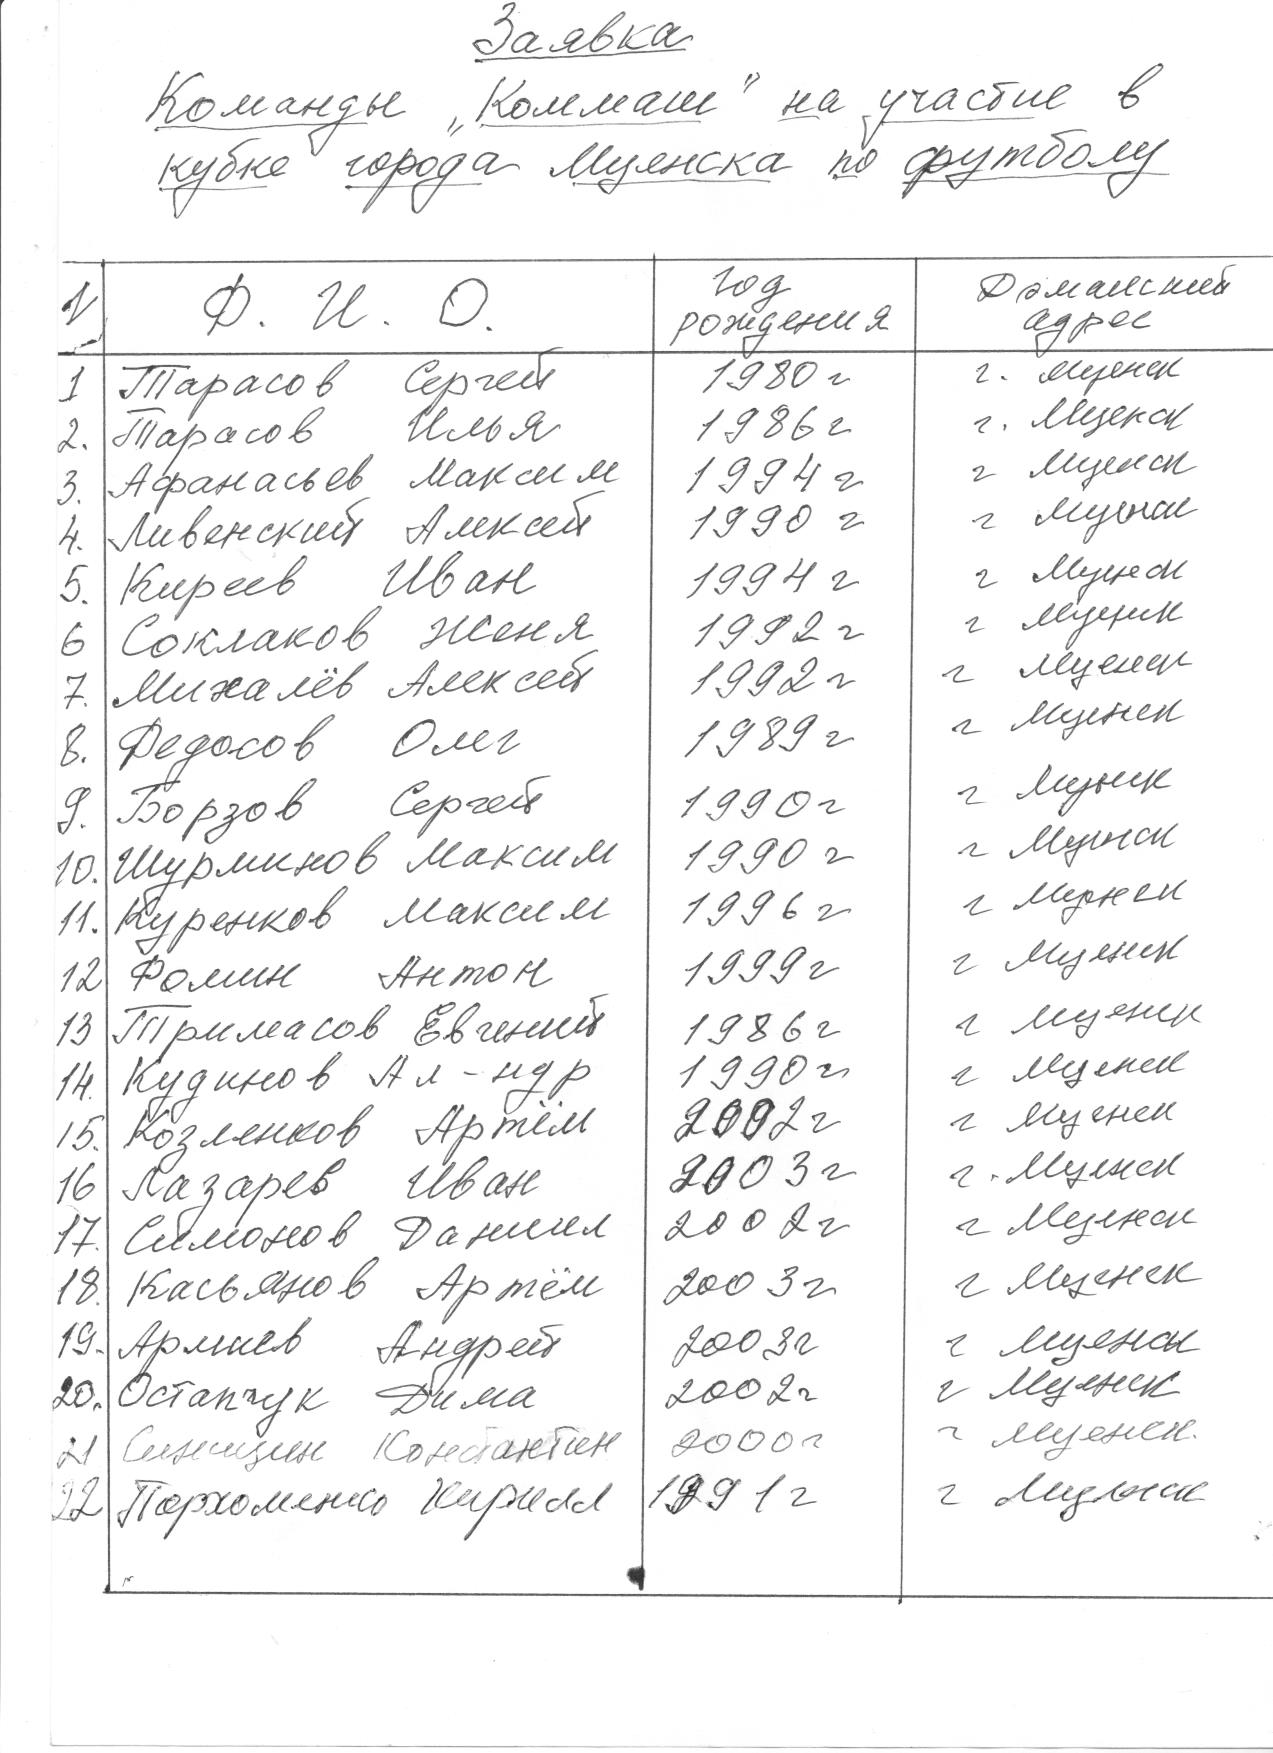 Заявка
Команды „Коммаш" на участие в
кубке города Мценска по футболу
N Ф. И. О. год рождения Домашний адрес
1 Тарасов Сергей 1980 г г. Мценск
2. Тарасов Илья 1986 г г. Мценск
3. Афанасьев Максим 1994 г г Мценск
4. Ливенский Алексей 1990 г г Мценск
5. Киреев Иван 1994 г г Мценск
6 Соклаков Женя 1992 г г Мценск
7. Михалёв Алексей 1992 г г Мценск
8. Федосов Олег 1989 г г Мценск
9. Борзов Сергей 1990 г г Мценск
10. Шурминов Максим 1990 г г Мценск
11. Куренков Максим 1996 г г Мценск
12 Фомин Антон 1999 г г Мценск
13 Тримасов Евгений 1986 г г Мценск
14. Кудинов Ал-ндр 1990 г г Мценск
15. Козленков Артём 2002 г г Мценск
16 Лазарев Иван 2003 г г. Мценск
17. Симонов Даниил 2002 г г Мценск
18. Касьянов Артём 2003 г г Мценск
19. Андрей 2003 г г Мценск
20. Остапчук Дима 2002 г г Мценск
21 Синицин Константин 2000 г г Мценск.
22 Пархоменко Кирилл 1991 г г Мценск